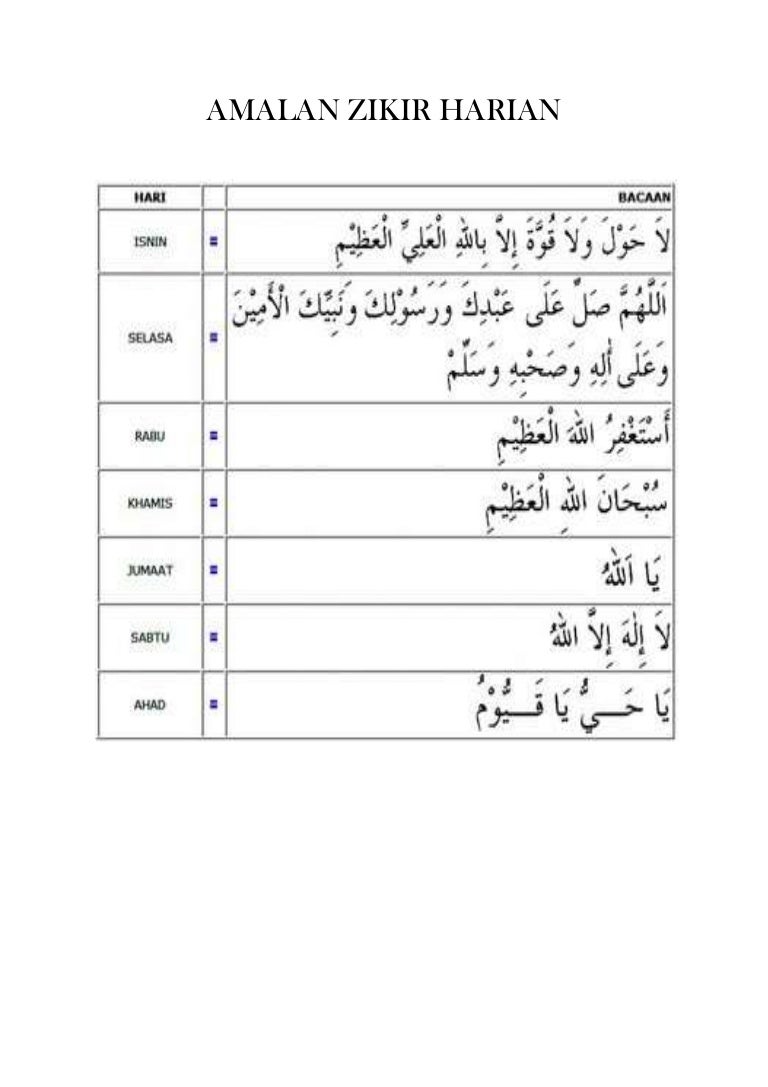 AMALAN ZIKIR HARIAN
HARI BACAAN
ISNIN = لاَ حَوْلَ وَلاَ قُوَّةَ إِلاَّ بِاللهِ الْعَلِيِّ الْعَظِيْمِ
SELASA = اَللَّهُمَّ صَلِّ عَلَى عَبْدِكَ وَرَسُوْلِكَ وَنَبِيِّكَ الْأَمِيْنَ
وَعَلَى أَلِهِ وَصَحْبِهِ وَسَلِّمْ
RABU = أَسْتَغْفِرُ اللهَ الْعَظِيْمِ
KHAMIS = سُبْحَانَ اللهِ الْعَظِيْمِ
JUMAAT = يَا اَللهُ
SABTU = لاَ إِلَهَ إِلاَّ اللهُ
AHAD = يَا حَـــيُّ يَا قَـــيُّوْمُ